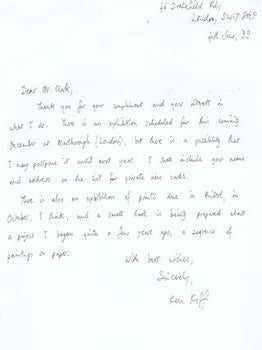 London, SW17
4th June, 99
Dear Mr. Clark,
Thank you for your compliment and your interest in
what I do. There is an exhibition scheduled for this coming
December at Marlborough (London), but there is a possibility that
I may postpone it until next year. I shall include your name
and address on the list for private view cards.
There is also an exhibition of prints due in Bristol, in
October, I think, and a small book is being prepared about
a project I began quite a few years ago, a sequence of
paintings on paper.
With best wishes,
Sincerely,
Ken Kiff